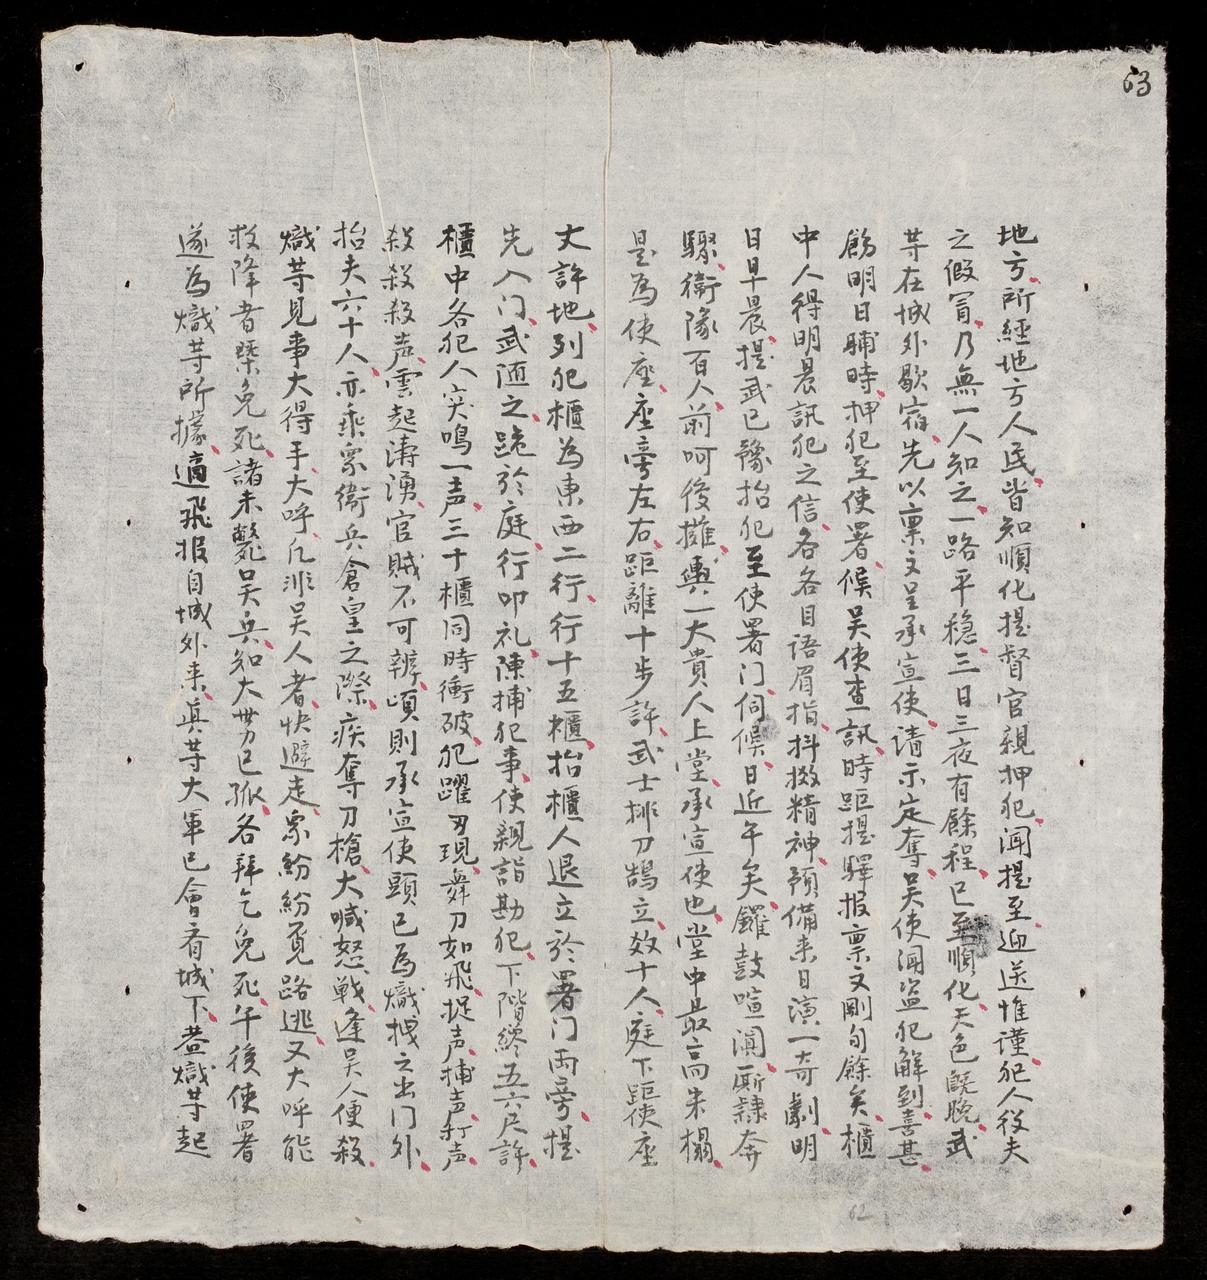 63
地方、所經地方人民、皆知順化提督官親押犯、聞提至、迎送惟謹、犯人役夫
之假冒、乃無一人知之、一路平穩、三日三夜有餘程、已至順化、天色既晚、武
等在城外歇宿、先以禀文呈承宣使、請示定奪、吳使聞盜犯解到、喜甚、
飭明日晡時、押犯至使署、候吳使查訊、時距提驛报禀文剛旬餘矣、櫃
中人得明晨訊犯之信、各各目語眉指、抖擞精神、預備来日演一奇劇、明
日早晨、提武已豫抬犯至使署门、伺候、日近午矣、鑼鼓喧阗、厮隷奔
驟、衛隊百人、前呵後擁、輿一大貴人上堂、承宣使也、堂中最高朱榻、
是為使座、座旁左右、距離十步許、武士排刀鵠立、效十人、庭下距使座
丈許地、列犯櫃為東西二行、行十五櫃、抬櫃人退立於署门兩旁、提
先入门、武随之、跪於庭、行叩礼、陳捕犯事、使親詣勘犯、下階纔五六尺許、
櫃中各犯人突鳴一声、三十櫃同時衝破、犯躍刃現、舞刀如飛、捉声捕声打声
殺殺殺声、雲起涛湧、官賊不可辨、頃則承宣使頭已為熾拽之出门外、
抬夫六十人、亦乘眾衛兵倉皇之際、疾奪刀槍、大喊怒戰、逢吳人便殺、
熾等見事大得手、大呼、凡非吳人者、快避走、眾紛紛覓路逃、又大呼能
投降者槩免死、諸未斃吳兵、知大势已孤、各拜乞免死、午後使署
遂為熾等所據、適飛报自城外来、真等大軍已會斉城下、盖熾等起
62